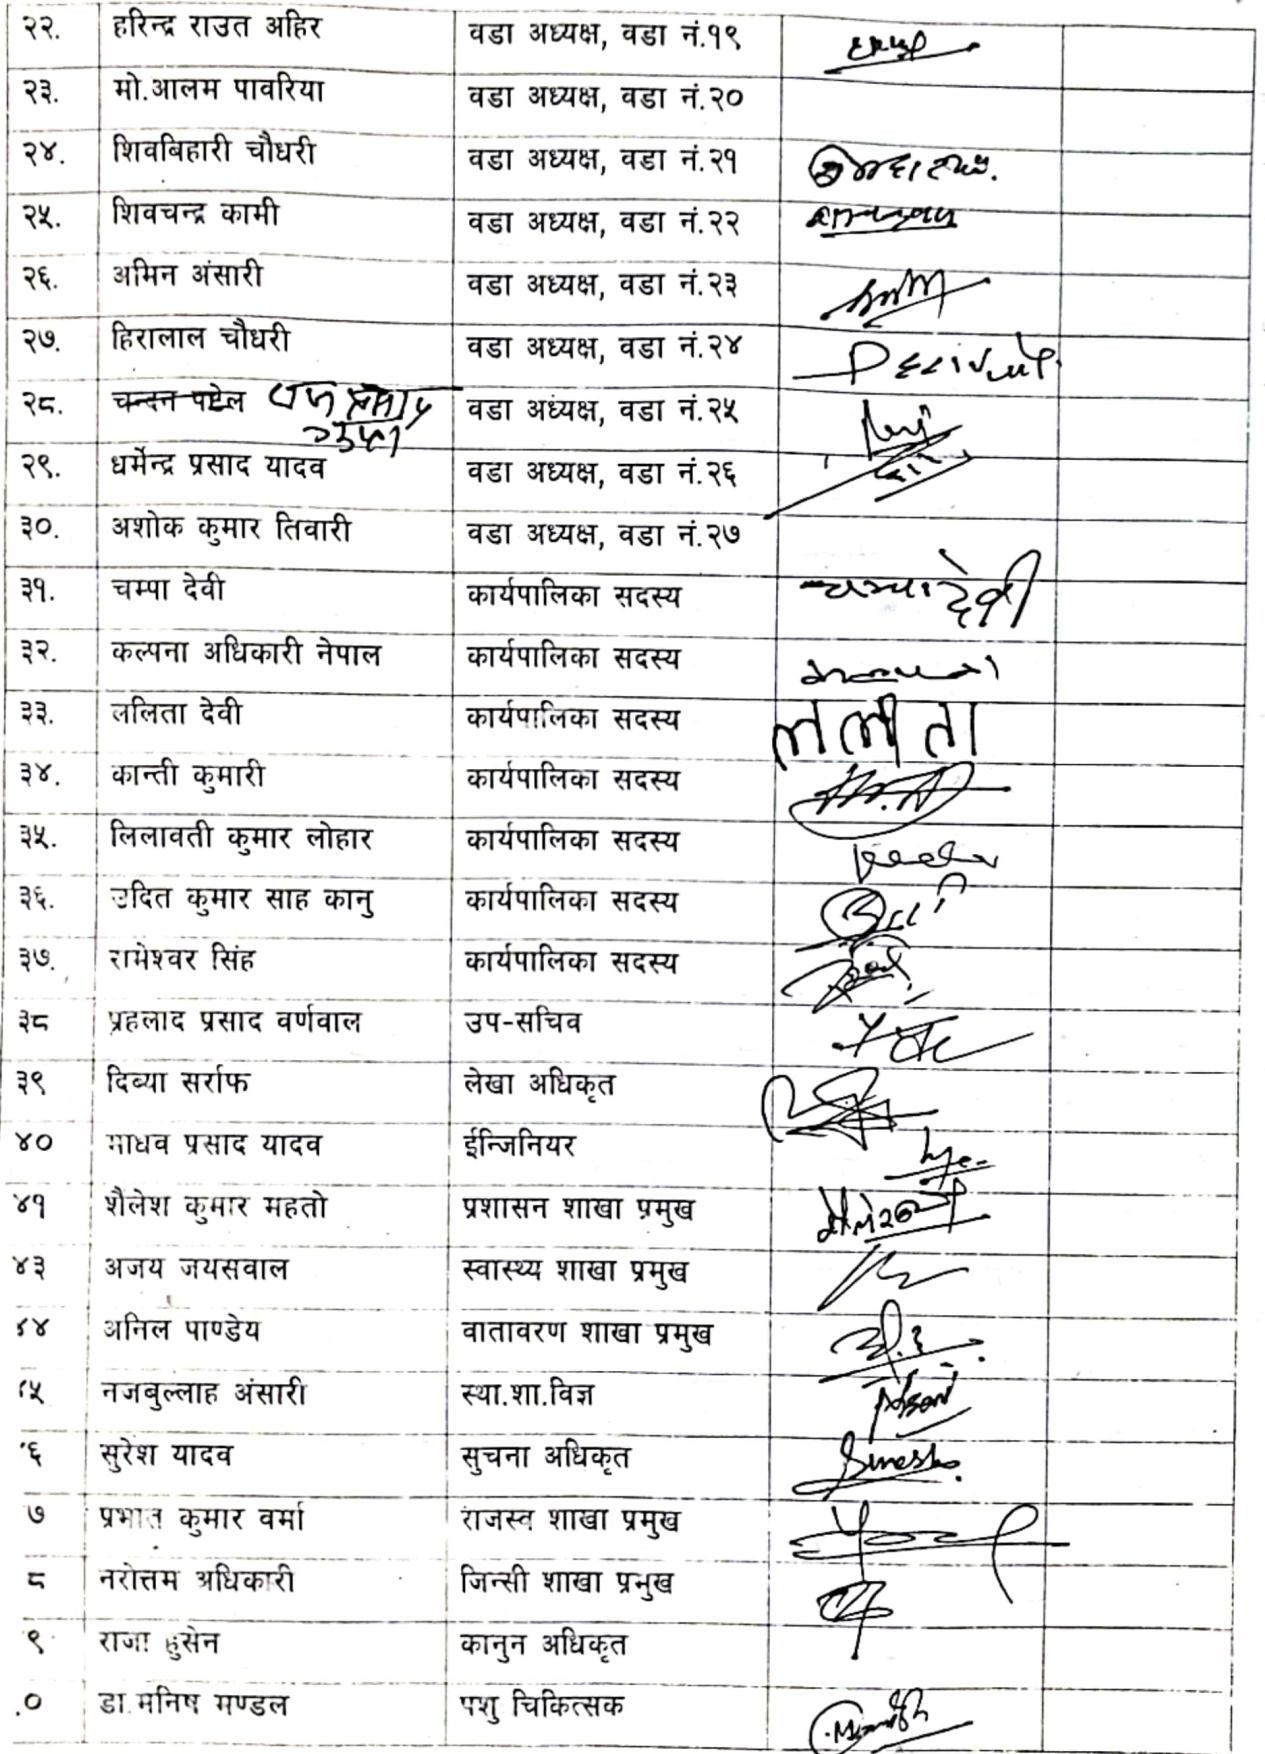 २२. हरिन्द्र राउत अहिर वडा अध्यक्ष, वडा नं.१९
२३. मो.आलम पावरिया वडा अध्यक्ष, वडा नं.२०
२४. शिवबिहारी चौधरी वडा अध्यक्ष, वडा नं.२१
२५. शिवचन्द्र कामी वडा अध्यक्ष, वडा नं.२२
२६. अमिन अंसारी वडा अध्यक्ष, वडा नं.२३
२७. हिरालाल चौधरी वडा अध्यक्ष, वडा नं.२४
२८. चन्दन पटेल वडा अध्यक्ष, वडा नं.२५
२९. धर्मेन्द्र प्रसाद यादव वडा अध्यक्ष, वडा नं.२६
३०. अशोक कुमार तिवारी वडा अध्यक्ष, वडा नं.२७
३१. चम्पा देवी कार्यपालिका सदस्य चम्पा देवी
३२. कल्पना अधिकारी नेपाल कार्यपालिका सदस्य
३३. ललिता देवी कार्यपालिका सदस्य ललीता
३४. कान्ती कुमारी कार्यपालिका सदस्य
३५. लिलावती कुमार लोहार कार्यपालिका सदस्य
३६. उदित कुमार साह कानु कार्यपालिका सदस्य
३७. रामेश्वर सिंह कार्यपालिका सदस्य
३८ प्रहलाद प्रसाद वर्णवाल उप-सचिव
३९ दिब्या सर्राफ लेखा अधिकृत
४० माधव प्रसाद यादव ईन्जिनियर
४१ शैलेश कुमार महतो प्रशासन शाखा प्रमुख
४३ अजय जयसवाल स्वास्थ्य शाखा प्रमुख
४४ अनिल पाण्डेय वातावरण शाखा प्रमुख
५ नजबुल्लाह अंसारी स्था.शा.विज्ञ
६ सुरेश यादव सुचना अधिकृत
७ प्रभात कुमार वर्मा राजस्व शाखा प्रमुख
८ नरोत्तम अधिकारी जिन्सी शाखा प्रमुख
९ राजा हुसेन कानुन अधिकृत
०  डा.मनिष मण्डल पशु चिकित्सक